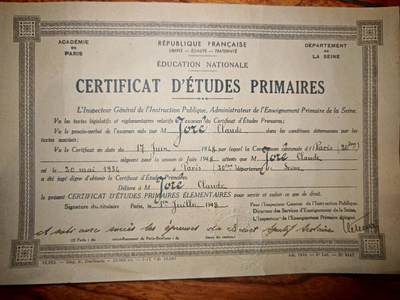 ACADÉMIE
DE
PARIS
RÉPUBLIQUE FRANÇAISE
LIBERTÉ - ÉGALITÉ - FRATERNITÉ
ÉDUCATION NATIONALE
DÉPARTEMENT
DE
LA SEINE
CERTIFICAT D'ÉTUDES PRIMAIRES
L'Inspecteur Général de l'Instruction Publique, Administrateur de l'Enseignement Primaire de la Seine,
Vu les textes législatifs et réglementaires relatifs à l'examen du Certificat d'Études Primaires;
Vu le procès-verbal de l'examen subi par M Joré Claude dans les conditions déterminées par les
textes susvisés;
Vu le Certificat en date du 17 Juin 1948 par lequel la Commission cantonale d Paris (20me)
siégeant pour la session de Juin 1948 atteste que M Joré Claude,
né le 20 mai 1934 à Paris (20me) département de Seine,
a été jugé digne d'obtenir le Certificat d'Études Primaires.
Délivre à M Joré Claude
le présent CERTIFICAT D'ÉTUDES PRIMAIRES ÉLÉMENTAIRES pour servir et valoir ce que de droit.
Signature du titulaire Paris, le 1er Juillet 1948
Pour l'Inspecteur Général de l'Instruction Publique,
Directeur des Services d'Enseignement de la Seine,
L'Inspecteur de l'Enseignement Primaire délégué
A subi avec succès les épreuves du Brevet Sportif Scolaire